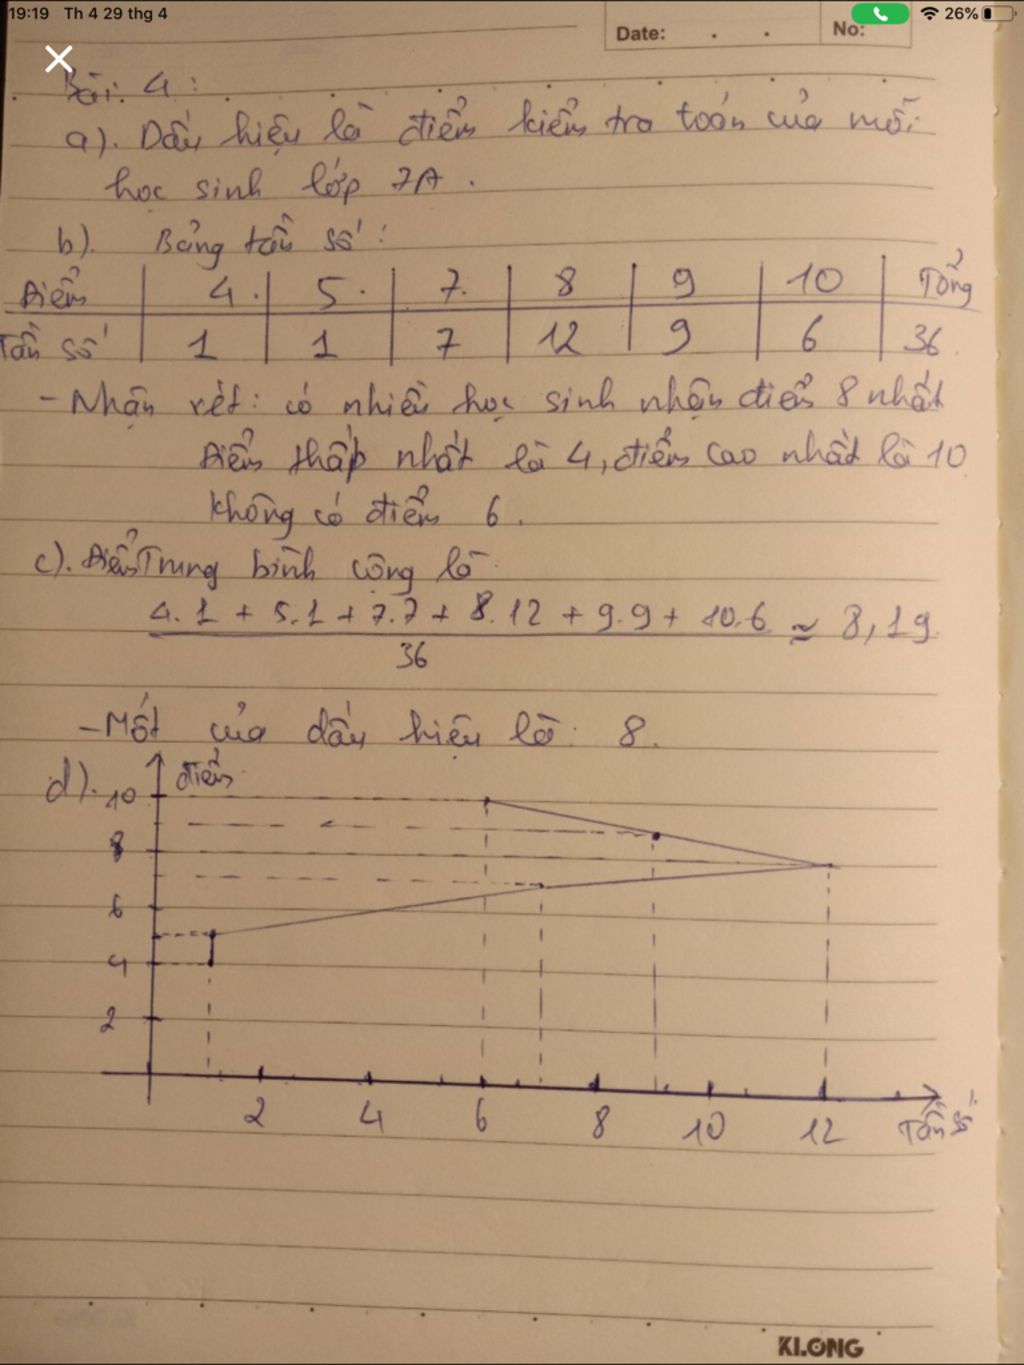 19:19 Th 4 29 thg 4 26%
Date: . . No:
Bài. 4:
a). Dấu hiệu là điểm kiểm tra toán của mỗi
học sinh lớp 7A.
b). Bảng tần số:
Điểm 4. 5. 7. 8 9 10 Tổng
Tần số 1 1 7 12 9 6 36.
- Nhận xét: có nhiều học sinh nhận điểm 8 nhất
Điểm thấp nhất là 4, điểm cao nhất là 10
Không có điểm 6.
c). Điểm Trung bình cộng là
4.1 + 5.1 + 7.7 + 8.12 + 9.9 + 10.6 ≈ 8,19.
36
- Mốt của dấu hiệu là: 8.
d). điểm
10
8
6
4
2
2 4 6 8 10 12 Tần số
KLONG